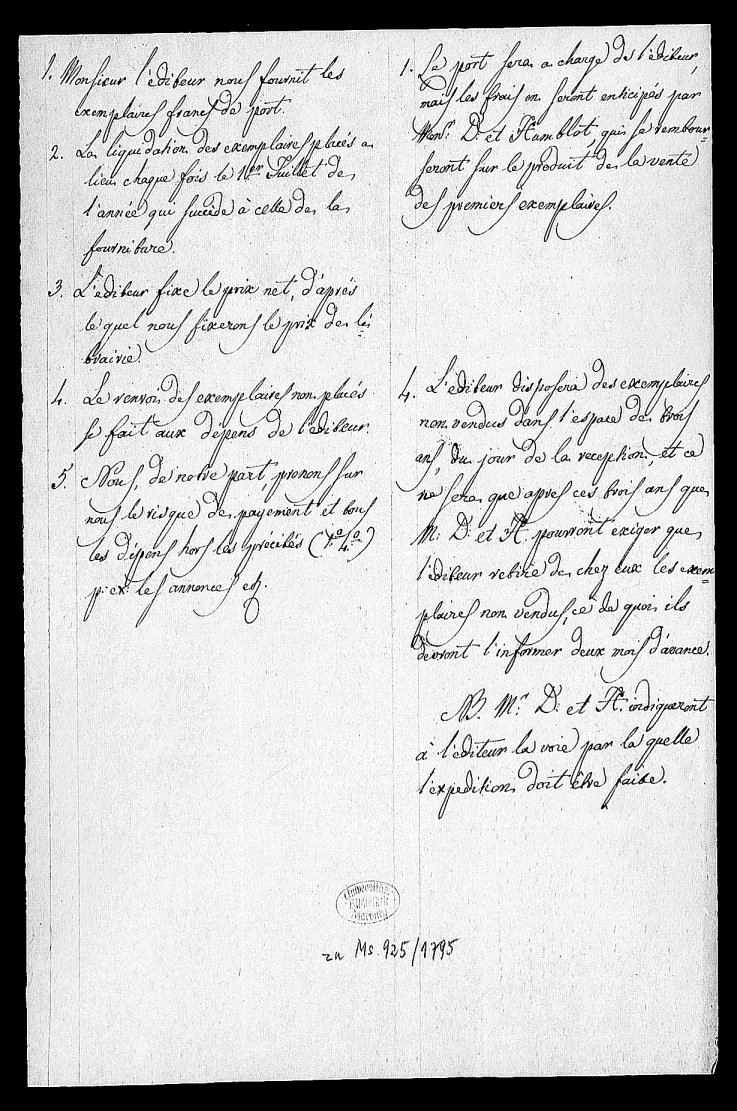 1. Monsieur l'éditeur nous fournit les
exemplaires francs de port.
2. La liquidation des exemplaires placés a
lieu chaque fois le 1er Juillet de
l'année qui succède à celle de la
fourniture.
3. L'éditeur fixe le prix net, d'après
le quel nous fixerons le prix de li-
brairie.
4. Le renvoi des exemplaires non placés
se fait aux dépens de l'éditeur.
5. Nous, de notre part, prenons sur
nous le risque de payement et tous
les dépens hors les précités (1º/4º)
p: ex: les annonces etz.
1. Le port sera a charge de l'éditeur,
mais les frais en seront enticipés par
Mons. D. et Humblot, qui se rembour=
seront sur le produit de la vente
des premiers exemplaires.
4. L'éditeur disposera des exemplaires
non vendus dans l'espace de trois
ans, du jour de la reception, et ce
ne sera que apres ces trois ans que
M: D: et H. pourront exiger que
l'éditeur retire de chez eux les exem=
plaires non vendus, ce de quoi ils
devront l'informer deux mois d'avance.
NB. Mrs D: et H. indiqueront
à l'éditeur la voie par la quelle
l'expedition doit être faite.
Universitäts
Bibliothek
Marburg
zu Ms. 925/1795